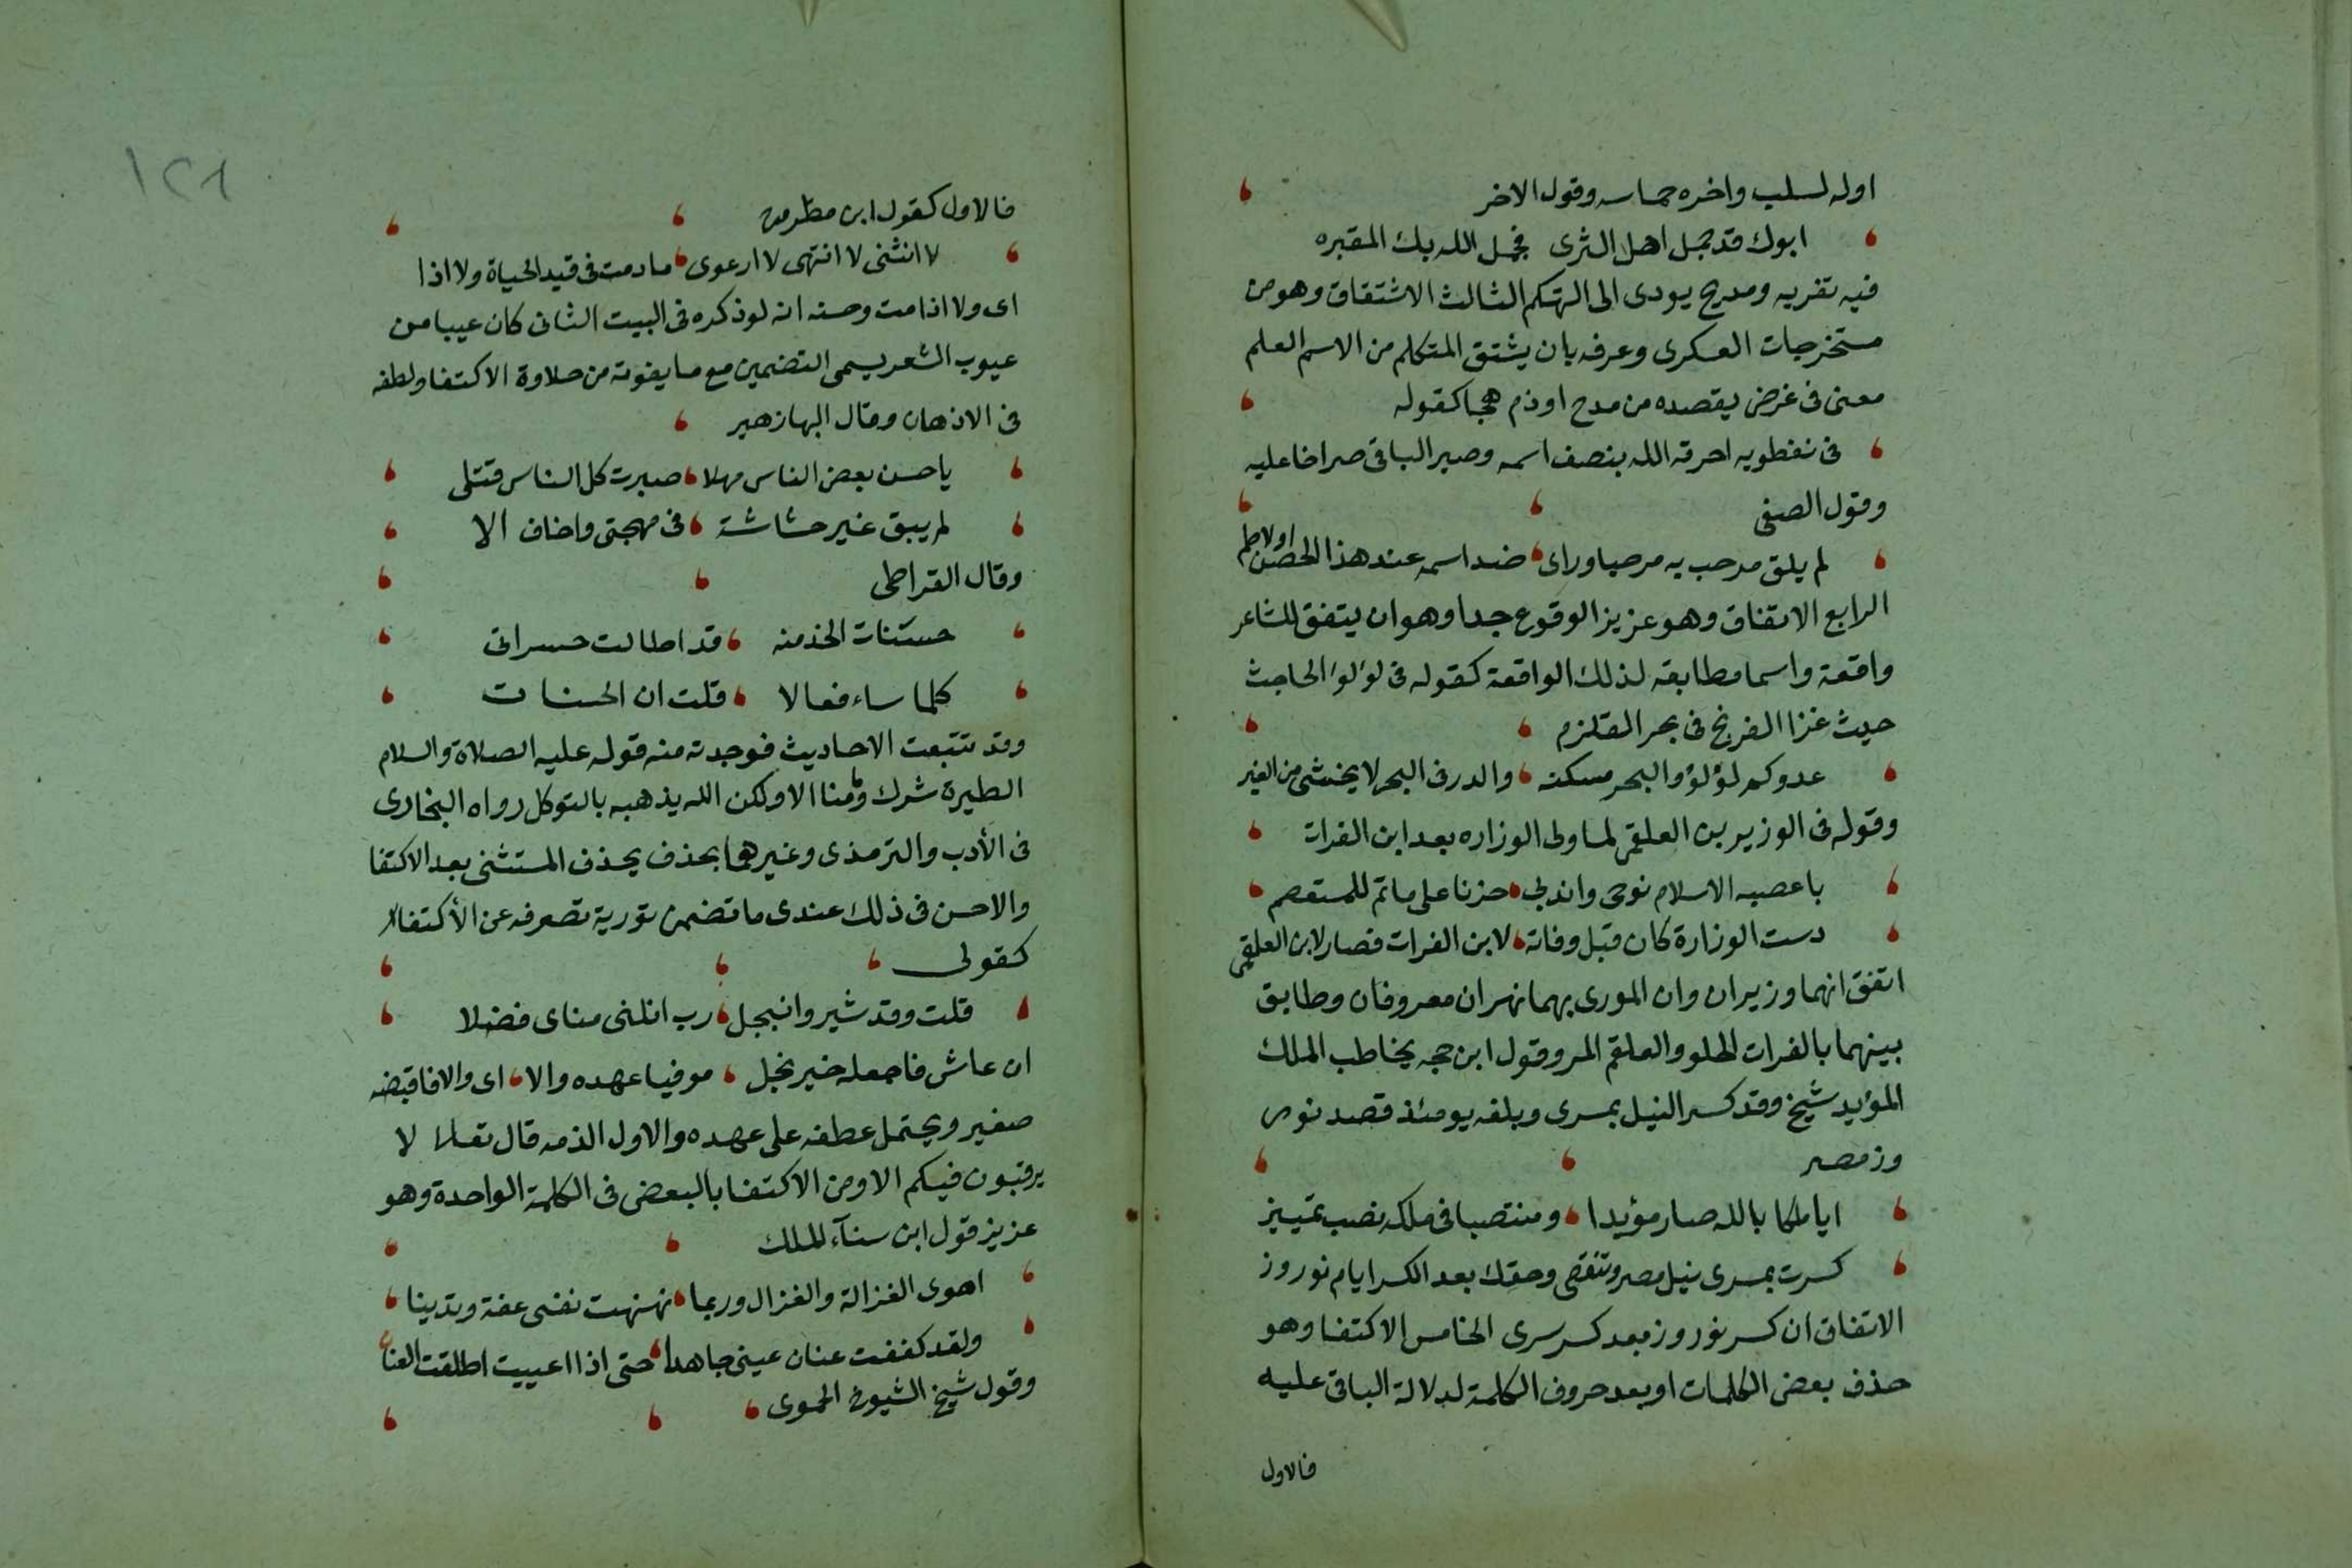 اوله لسلب واخره حماسه وقول الاخر
ابوك قد جمل اهل الثرى فجمل الله بك المقبره
فيه تقريه ومدح يودى الى التهكم الثالث الاشتقاق وهو من
مستخرجات العسكرى وعرفه بان يشتق المتكلم من الاسم العلم
معنى فى غرض يقصده من مدح اوذم هجا كقوله
فى نفطويه احرقه الله بنصف اسمه وصير الباقى صراخا عليه
وقول الصفى
لم يلق مرحب به مرحبا وراى ضد اسمه عند هذا الحصن اولاطم
الرابع الاتفاق وهو عزيز الوقوع جدا وهو ان يتفق للشاعر
واقعة واسما مطابقه لذلك الواقعة كقوله فى لؤلؤ الحاجث
حيث غزا الفرنج فى بحر القلزم
عدوكم لؤلؤ والبحر مسكنه والدر فى البحر لا يخشى من الغير
وقوله فى الوزير بن العلقمى لما ولى الوزاره بعد ابن الفرات
يا عصبه الاسلام نوحى واندبى حزنا على ماتم للمستعصم
دست الوزارة كان قبل وفاته لابن الفرات فصار لابن العلقمى
اتفق انهما وزيران وان المورى بهما نهران معروفان وطابق
بينهما بالفرات الحلو والعلقم المر وقول ابن حجه يخاطب الملك
المؤيد شيخ وقد كسر النيل بمسرى وبلغه يومئذ قصد نوور
وز مصر
ايا ملكا بالله صار مؤيدا ومنتصبا فى ملكه نصب تمييز
كسرت بمسرى نيل مصر وتنقضى وحقك بعد الكسر ايام نوروز
الاتفاق ان كسر نوروز بعد كسر سرى الخامس الاكتفا وهو
حذف بعض الكلمات او بعد حروف الكلمة لدلالة الباقى عليه
فالاول
١٢٨
فالاول كقول ابن مطروح
لا انثنى لا انتهى لا ارعوى مادمت فى قيد الحياة ولا اذا
اى ولا اذا مت وحسنه انه لو ذكره فى البيت الثانى كان عيبا من
عيوب الشعر يسمى التضمين مع ما يفوته من حلاوة الاكتفا ولطفه
فى الاذهان وقال البها زهير
يا حسن بعض الناس مهلا صيرت كل الناس قتلى
لم يبق غير حشاشة فى مهجتى واخاف الا
وقال القيراطى
حسنات الخد منه قد اطالت حسراتى
كلما ساء فعالا قلت ان الحسنات
وقد تتبعت الاحاديث فوجدته منه قوله عليه الصلاة والسلام
الطيرة شرك وما منا الا ولكن الله يذهبه بالتوكل رواه البخارى
فى الأدب والترمذى وغيرهما بحذف يحذف المستثنى بعد الاكتفا
والاحسن فى ذلك عندى ما تضمن تورية تصرفه عن الأكتفاء
كقولى
قلت وقد شيروا نبجل رب انلنى مناى فضلا
ان عاش فاجعله خير نجل موفيا عهده والا اى والا فاقبضه
صغير ويحتمل عطفه على عهده والاول الذمه قال تعالى لا
يرقبون فيكم الا ومن الاكتفا بالبعض فى الكلمة الواحدة وهو
عزيز قول ابن سنآء الملك
اهوى الغزالة والغزال وربما نهنهت نفسى عفة وتدينا
ولقد كففت عنان عينى جاهدا حتى اذا اعييت اطلقت العنا
وقول شيخ الشيوخ الحموى